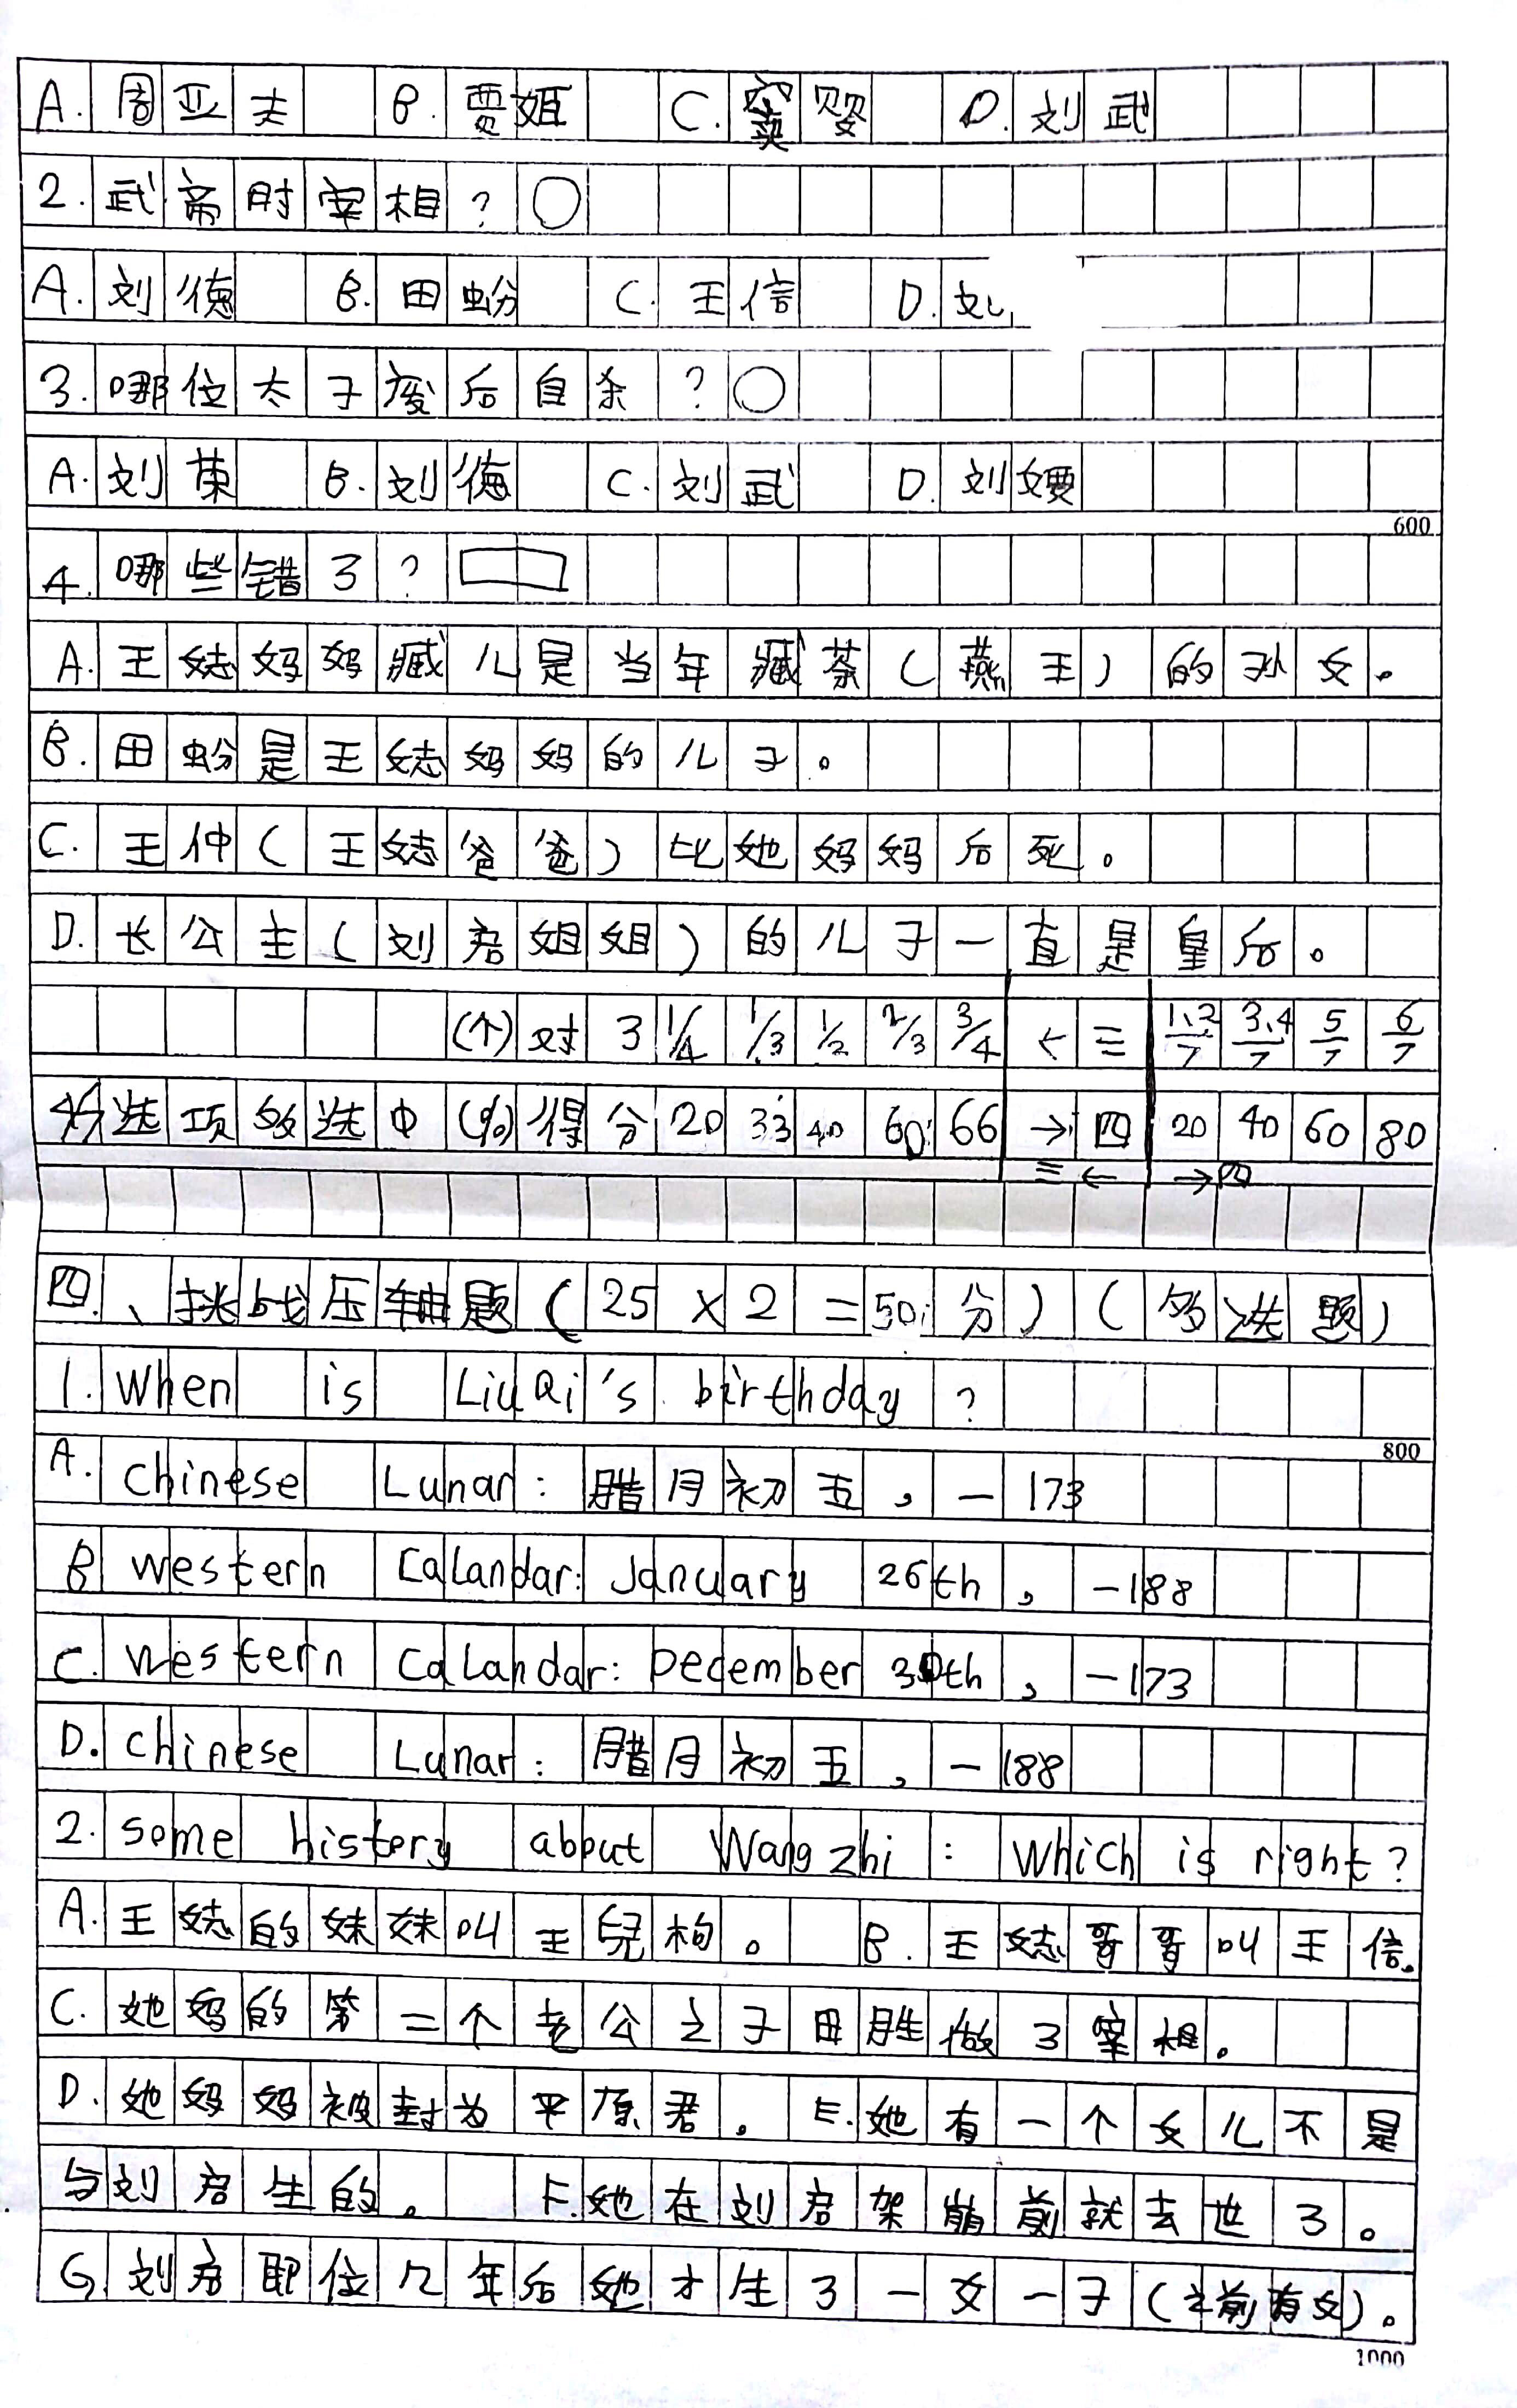 A. 周亚夫 B. 贾姬 C. 窦婴 D. 刘武
2. 武帝时宰相? ○
A. 刘德 B. 田蚡 C. 王信 D.
3. 哪位太子废后自杀?○
A. 刘荣 B. 刘德 C. 刘武 D. 刘嫖
600
4. 哪些错了?
A. 王娡妈妈臧儿是当年臧荼(燕王)的孙女。
B. 田蚡是王娡妈妈的儿子。
C. 王仲(王娡爸爸)比她妈妈后死。
D. 长公主(刘启姐姐)的儿子一直是皇后。
(个)对 3 1/4 1/3 1/2 2/3 3/4 ← 三 1、2/7 3、4/7 5/7 6/7
选项多选中(%)得分 20 33 40 60 66 → 四 20 40 60 80
三 ← → 四
四、挑战压轴题(25×2=50分)(多选题)
1. When is LiuQi's birthday ?
800
A. Chinese Lunar: 腊月初五, -173
B western Calandar: January 26th, -188
C. western Calandar: December 30th, -173
D. Chinese Lunar: 腊月初五, -188
2. some history about Wang zhi : Which is right?
A. 王娡的妹妹叫王兒枸。 B. 王娡哥哥叫王信。
C. 她妈的第二个老公之子田胜做了宰相。
D. 她妈妈被封为平原君。 E. 她有一个女儿不是
与刘启生的。 F. 她在刘启架崩前就去世了。
G. 刘启即位几年后她才生了一女一子(之前有女)。
1000